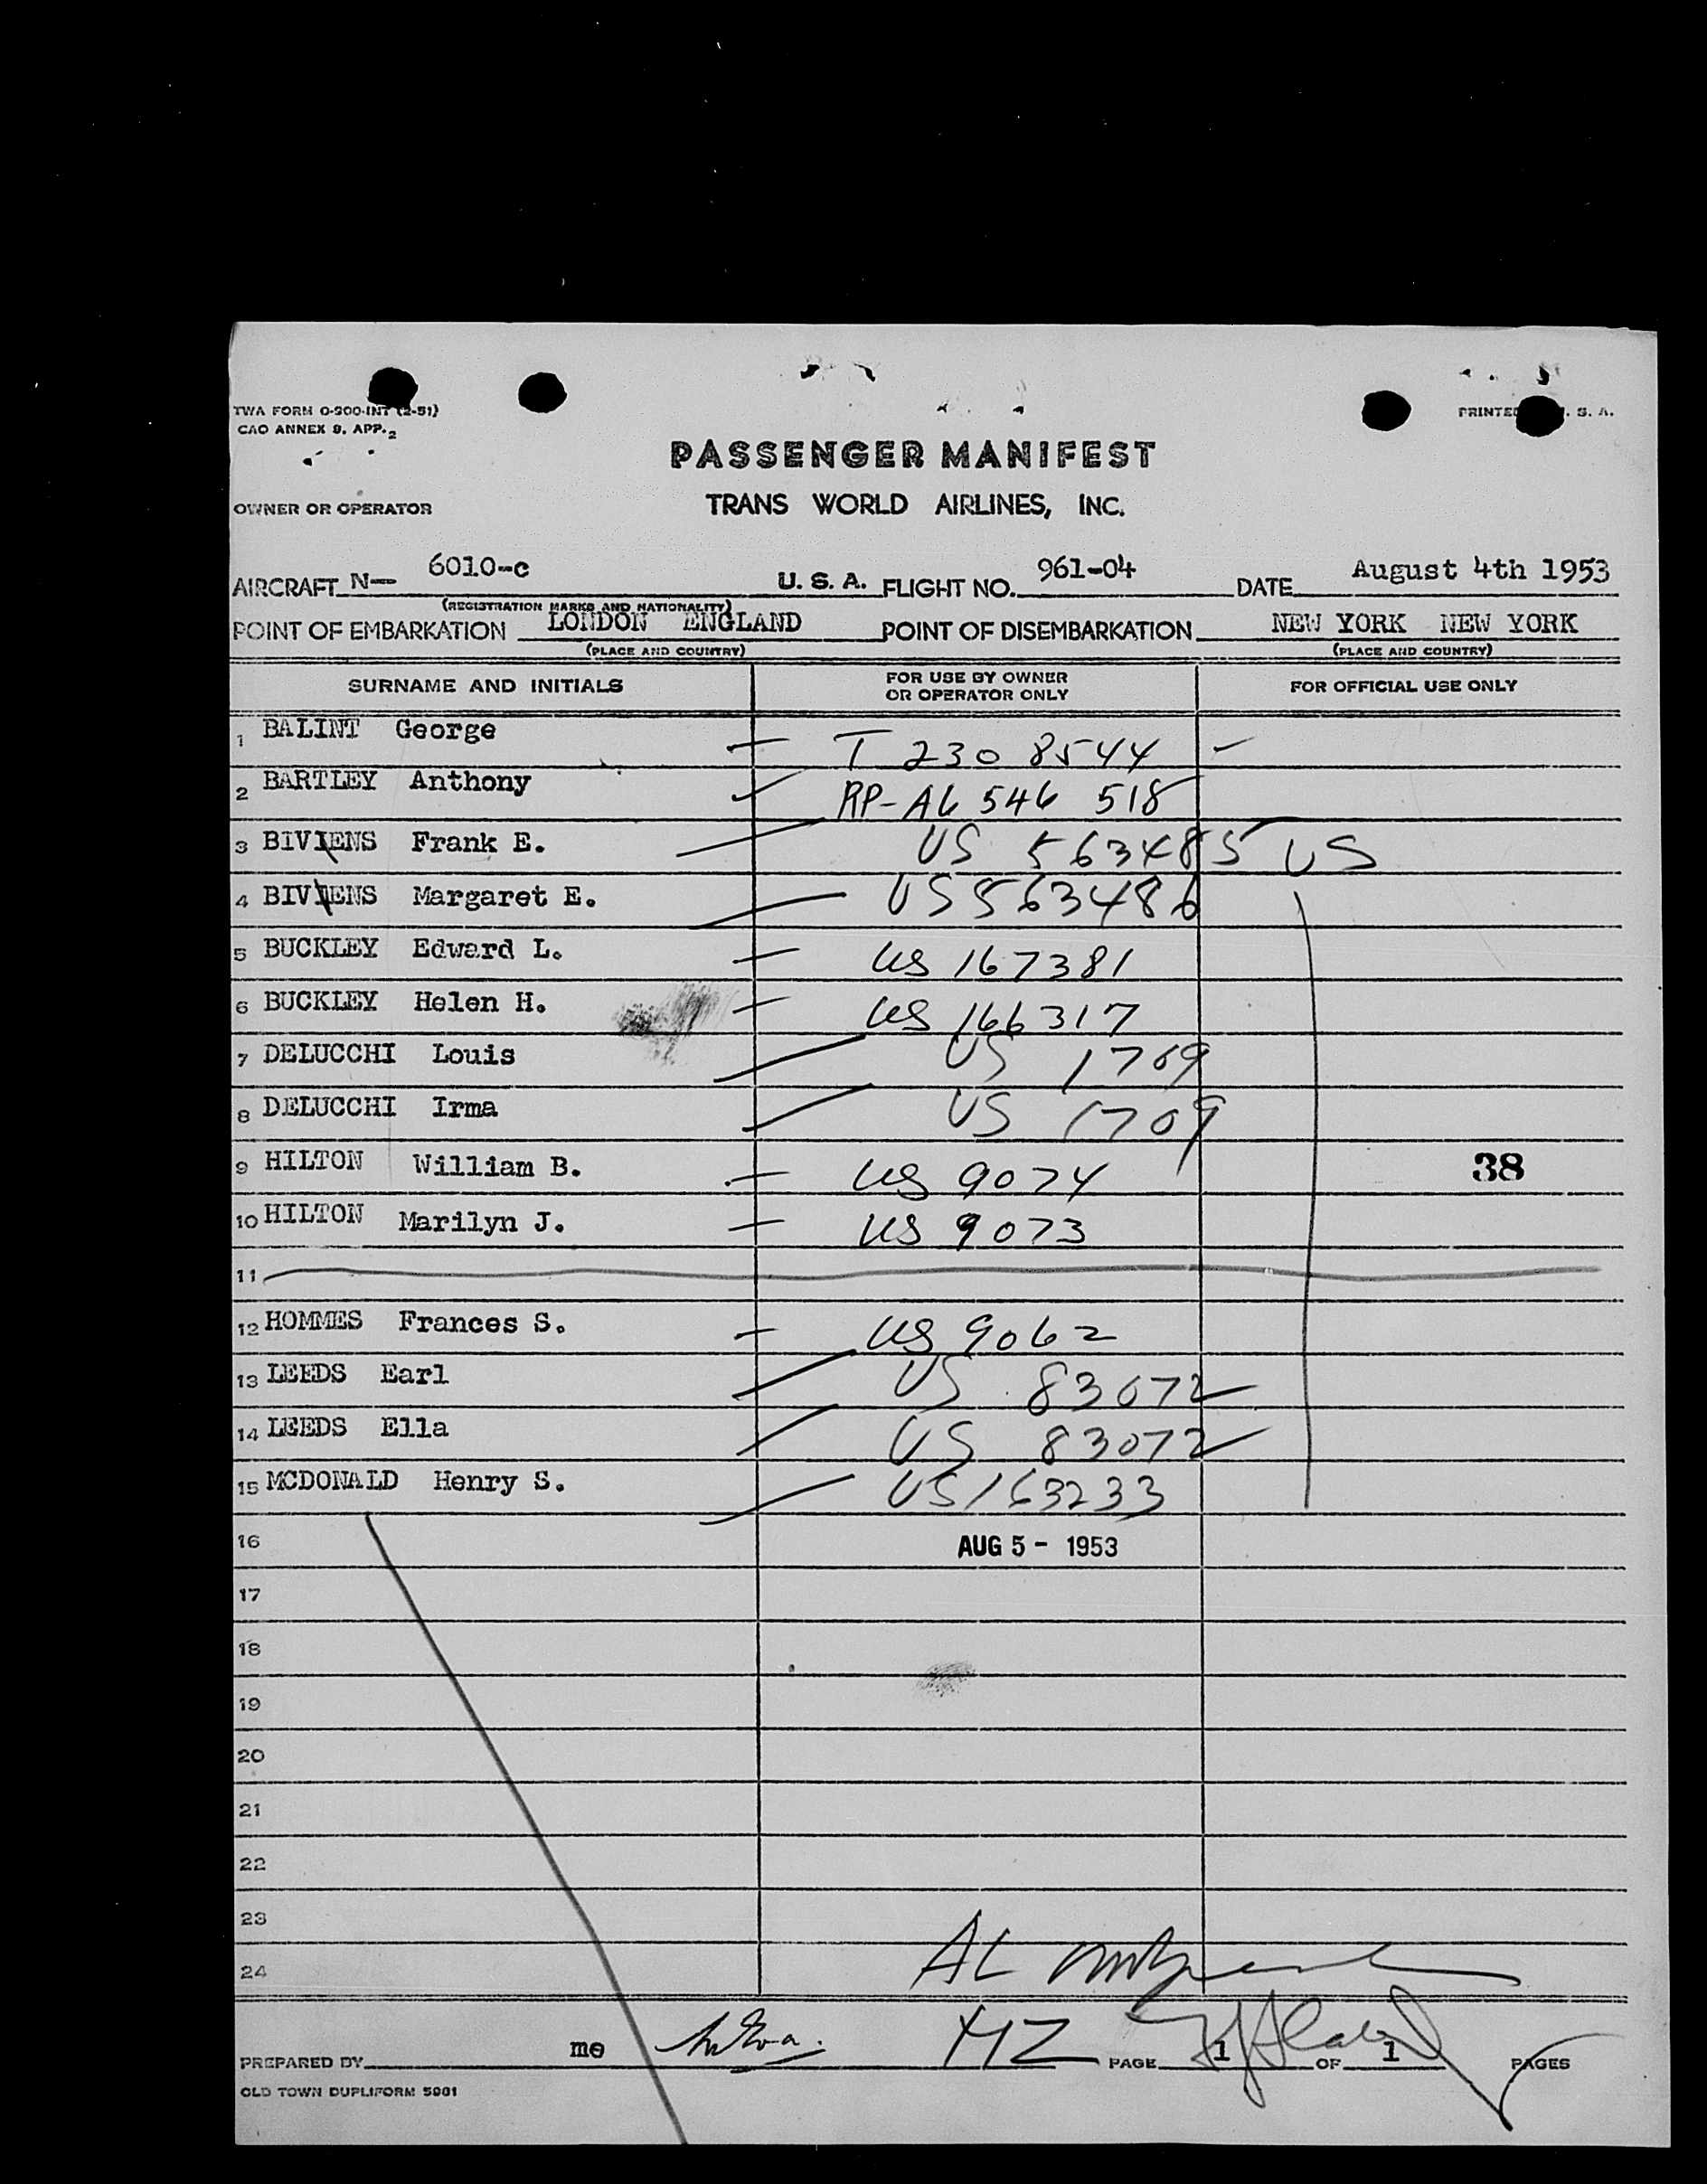 TWA FORM O-900-INT (2-51)
CAO ANNEX 9, APP. 2
PRINTED U. S. A.
PASSENGER MANIFEST
OWNER OR OPERATOR TRANS WORLD AIRLINES, INC.
AIRCRAFT N— 6010-c U. S. A. FLIGHT NO. 961-04 DATE August 4th 1953
(REGISTRATION MARKS AND NATIONALITY)
POINT OF EMBARKATION LONDON ENGLAND POINT OF DISEMBARKATION NEW YORK NEW YORK
(PLACE AND COUNTRY) (PLACE AND COUNTRY)
SURNAME AND INITIALS FOR USE BY OWNER OR OPERATOR ONLY FOR OFFICIAL USE ONLY
1 BALINT George T 230 8544
2 BARTLEY Anthony RP-A6 546 518
3 BIVIENS Frank E. US 563485 US
4 BIVIENS Margaret E. US 563486
5 BUCKLEY Edward L. US 167381
6 BUCKLEY Helen H. US 166317
7 DELUCCHI Louis US 1709
8 DELUCCHI Irma US 1709
9 HILTON William B. US 9074 38
10 HILTON Marilyn J. US 9073
11
12 HOMMES Frances S. US 9062
13 LEEDS Earl US 83072
14 LEEDS Ella US 83072
15 MCDONALD Henry S. US 163233
16 AUG 5 - 1953
17
18
19
20
21
22
23
24
PREPARED BY me HZ PAGE 1 OF 1 PAGES
OLD TOWN DUPLIFORM 5901